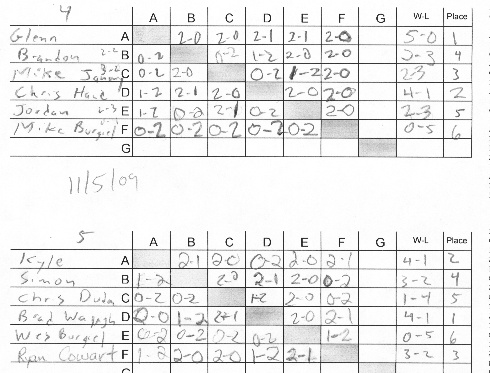 4 A B C D E F G W-L Place
Glenn A 2-0 2-0 2-1 2-1 2-0 5-0 1
Brandon B 0-2 0-2 1-2 2-0 2-0 4
Mike C 0-2 2-0 0-2 1-2 2-0 2-3 3
Chris D 1-2 2-1 2-0 2-0 2-0 4-1 2
Jordan E 1-2 0-2 2-1 0-2 2-0 2-3 5
Mike Burgiel F 0-2 0-2 0-2 0-2 0-2 0-5 6
G
11/5/09
5 A B C D E F G W-L Place
Kyle A 2-1 2-0 0-2 2-0 2-1 4-1 2
Simon B 1-2 2-0 2-1 2-0 0-2 3-2 4
Chris Duda C 0-2 0-2 1-2 2-0 0-2 1-4 5
Brad D 1-2 2-1 2-0 2-1 4-1 1
Wes Burgiel E 0-2 0-2 0-2 0-2 1-2 0-5 6
Ryan Cowart F 1-2 2-0 2-0 1-2 2-1 3-2 3